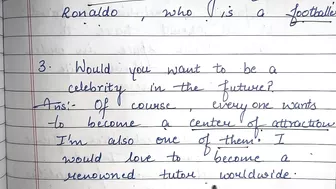 Ronaldo, who is a footballe
3. Would you want to be a
celebrity in the future?
Ans:- Of course, everyone wants
to become a center of attraction
I'm also one of them. I
would love to become a
renowned tutor worldwide.